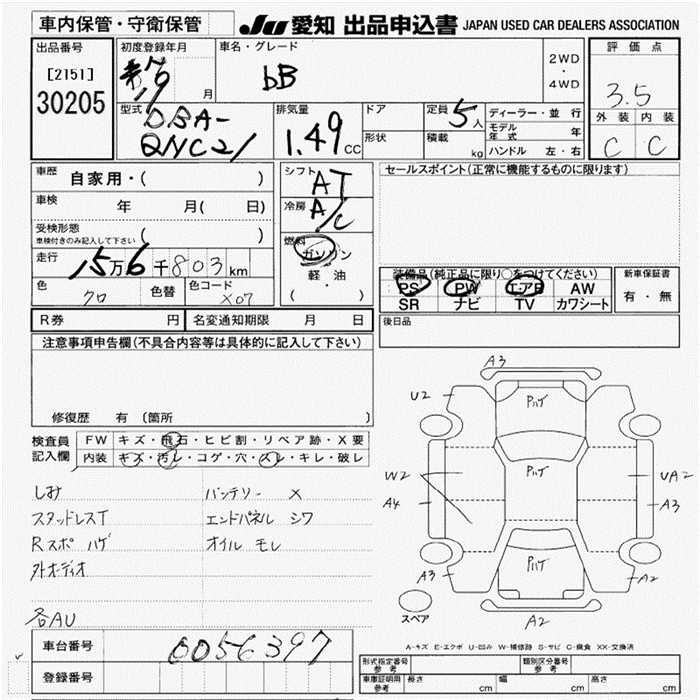 車内保管・守衛保管
JU 愛知 出品申込書 JAPAN USED CAR DEALERS ASSOCIATION
出品番号
[2151]
30205
初度登録年月
19 月
車名・グレード
bB
2WD
・
4WD
評価点
3.5
外装 内装
C C
型式
DBA-
QNC21
排気量
1.49 CC
ドア
形状
定員
5人
積載
kg
ディーラー・並行
モデル年式 年
ハンドル 左・右
車歴
自家用・( )
車検
年 月( 日)
受検形態
車検付きのみ記入して下さい ( )
走行
15万6千803km
色
クロ
色替
色コード
X07
シフト
AT
冷房
A/C
燃料
ガソリン
軽・油
( )
セールスポイント(正常に機能するものに限ります)
装備品(純正品に限り○をつけてください)
PS PW エアB AW
SR ナビ TV カワシート
新車保証書
有・無
R券 円
名変通知期限 月 日
後日品
注意事項申告欄(不具合内容等は具体的に記入して下さい)
修復歴 有 (箇所 )
検査員
記入欄
FW キズ・飛石・ヒビ割・リペア跡・X要
内装 キズ・汚レ・コゲ・穴・スレ・キレ・破レ
しみ バッテリー X
スタッドレスT エンドパネル シワ
Rスポ ハゲ オイル モレ
外オーディオ
各AU
A3
U2
ハゲ
W2
ハゲ
UA2
A4
A3
A3
ハゲ
A2
A2
スペア
A-キズ E-エクボ U-凹み W-補修跡 S-サビ C-腐食 XX-交換済
車台番号
0056397
登録番号
型式指定番号
参考
類別区分番号
参考
車庫証明用
参考
長さ cm
幅 cm
高さ cm